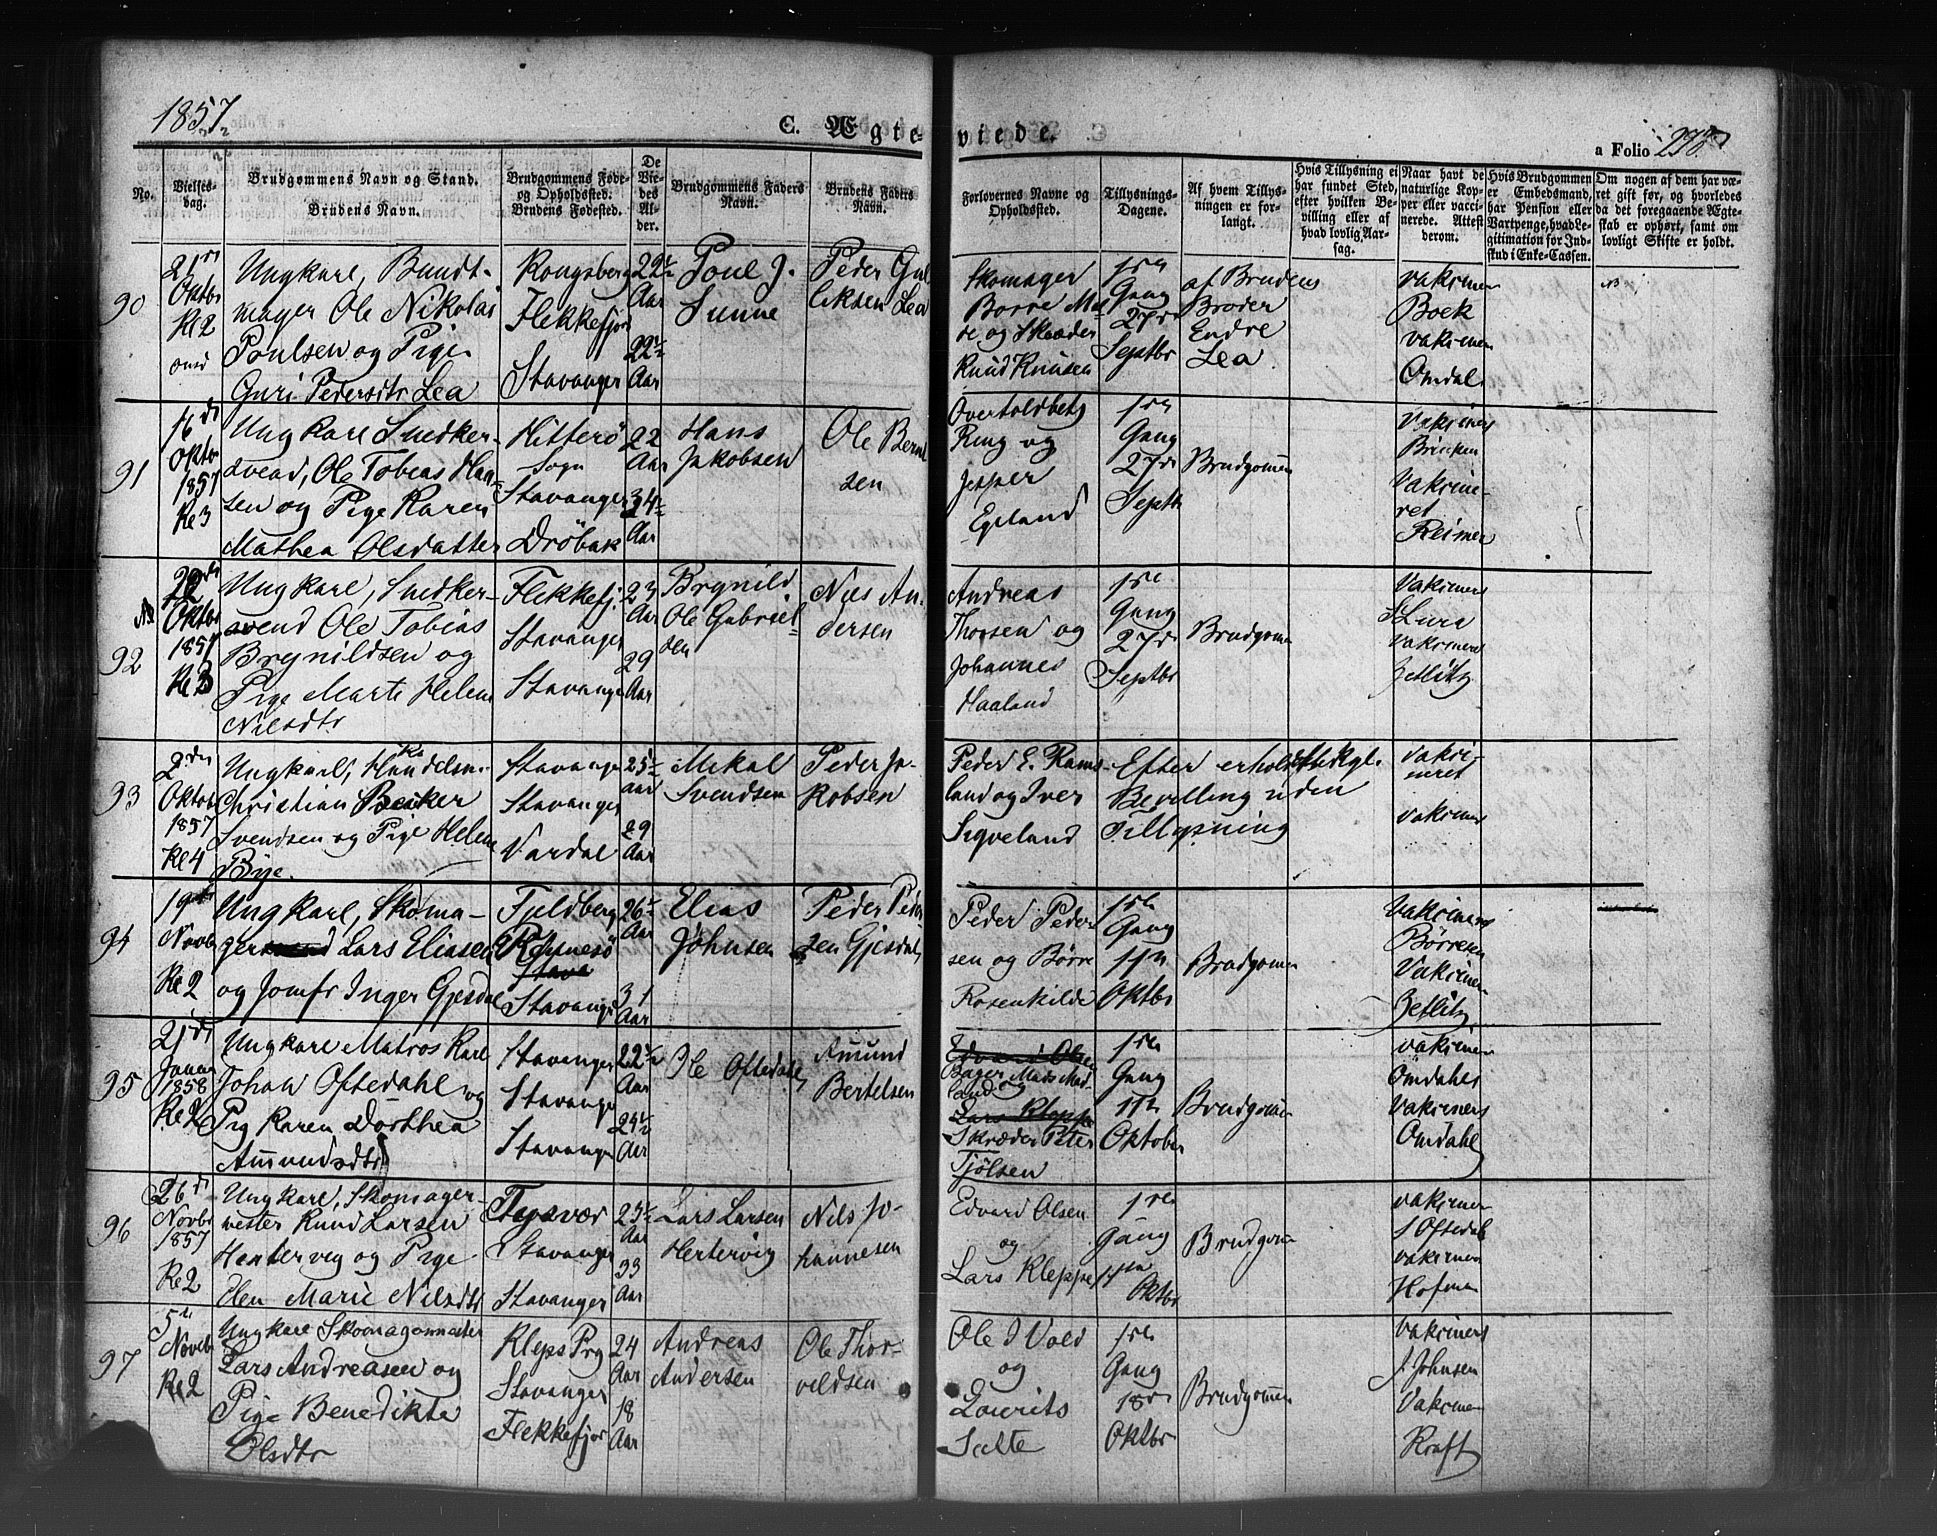 1857
C. Ægte-
viede.
a Folio 238
No.
Vielses-
dag.
Brudgommens Navn og Stand.
Brudens Navn.
Brudgommens Føde-
og Opholdsted.
Brudens Fødested.
De
Vie-
des
Al-
der.
Brudgommens Faders
Navn.
Brudens Faders
Navn.
Forlovernes Navne og
Opholdsted.
Tillysnings-
Dagene.
Af hvem Tillys-
ningen er for-
langt.
Hvis Tillysning ei
har fundet Sted,
efter hvilken Be-
villing eller af
hvad lovlig Aar-
sag.
Naar havt de
naturlige Kop-
per eller vacci-
nerede. Attest
derom.
Hvis Brudgommen
er Embedsmand,
har Pension eller
Vartpenge, hvad Le-
gitimation for Ind-
skud i Enke-Cassen.
Om nogen af dem har væ-
ret gift før, og hvorledes
da det foregaaende Ægte-
skab er ophørt, samt om
lovligt Skifte er holdt.
90
21de
Oktbr
Kl 2
Ungkarl, Bundt-
mager Ole Nikolai
Poulsen og Pige
Guri Pedersdtr Lea
Kongsberg
Flekkefjor
Stavanger
22½
Aar
22½
Aar
Poul J.
Sunne
Peder Gul
liksen Lea
Skomager
Borre Mos
se og Skræder
Knud Knusen
1ste
Gang
27de
Septbr
af Brudens
Broder
Endre
Lea
Vaksiner
Boek
vaksiner
Omdal
91
16de
Oktbr
1857
Kl 3
Ungkarl Snedker-
svend, Ole Tobias Han-
sen og Pige Karen
Mathea Olsdatter
Hitterø
Sogn
Stavanger
Drøbak
22
Aar
34½
Aar
Hans
Jakobsen
Ole Bernt
sen
Ring og
Jesper
Egeland
1ste
Gang
27de
Septbr
Brudgomen
Vaksiners
Vaksine-
ret
Reimer
92
Oktbr
1857
Ungkarl, Snedker-
svend Ole Tobias
Brynildsen og
Pige Marte Helene
Nilsdtr
Flekkefj.
Stavanger
Stavanger
23
Aar
29
Aar
Brynild
Ole Gabriel-
sen
Nils An-
dersen
Andreas
Thorsen og
Johannes
Haaland
1ste
Gang
27de
Septbr
Brudgomen
Vaksiners
S Lura
Vaksiners
Zetlitz
93
2den
Oktob
1857
Kl 4
Ungkarl, Handelsm.
Christian Becker
Svendsen og Pige Helene
Bye.
Stavanger
Stavanger
Vardal
25½
aar
29
Aar
Mikal
Svendsen
Peder Ja-
kobsen
Peder E. Rams-
land og Iver
Sigveland
Efter erholdt Kgl.
Bevilling uden
Tillysning
vaksi-
neret
vaksiner
94
19de
Novbr
Kl 2
Ungkarl, Skoma-
ger Lars Eliasen
og Jomfr Inger Gjesdal
Fjeldberg
Rennesø
Stavanger
26½
Aar
31
Aar
Elias
Johnsen
Peder Peder
sen Gjesdal
Peder Peder-
sen og Børre
Rosenkilde
1ste
Gang
11te
Oktbr
Brudgomen
Vaksiners
Børresen
Vaksiner
Zetlitz
95
21de
Januar
1858
Kl 2
Ungkarl Matros Karl
Johan Oftedahl og
Pig Karen Dorthea
Amundsdtr
Stavanger
Stavanger
Stavanger
22½
Aar
24½
Aar
Ole Oftedahl
Amund
Bertelsen
Edvard Olsen
Bager Mads Mad-
land og
Lars Kleppe
Skræder Peter
Tjølsen
1ste
Gang
11te
Oktober
Brudgomen
vaksiner
Omdahl
Vaksiners
Omdahl
96
26de
Novbr
1857
Kl 2
Ungkarl, Skomager-
mester Knud Larsen
Hertervig og Pige
Elen Marie Nilsdtr
Tysvær
Stavanger
Stavanger
25½
Aar
33
Aar
Lars Larsen
Hertervig
Nils Jo-
hannesen
Edvard Olsen
og
Lars Kleppe
1ste
Gang
11te
Oktbr
Brudgom
vaksiner
S Oftedal
vaksiner
Hofman
97
5te
Novbr
Kl 2
Ungkarl Skomagermester
Lars Andreasen og
Pige Benedikte
Olsdtr
Kleps Prg
Stavanger
Flekkefjor
24
Aar
18
Aar
Andreas
Andersen
Ole Thor-
veldsen
Ole J Vold
og
Lourits
Salte
1ste
Gang
18de
Oktbr
Brudgomen
Vaksiners
J. Johnsen
Vaksiner
Kraft